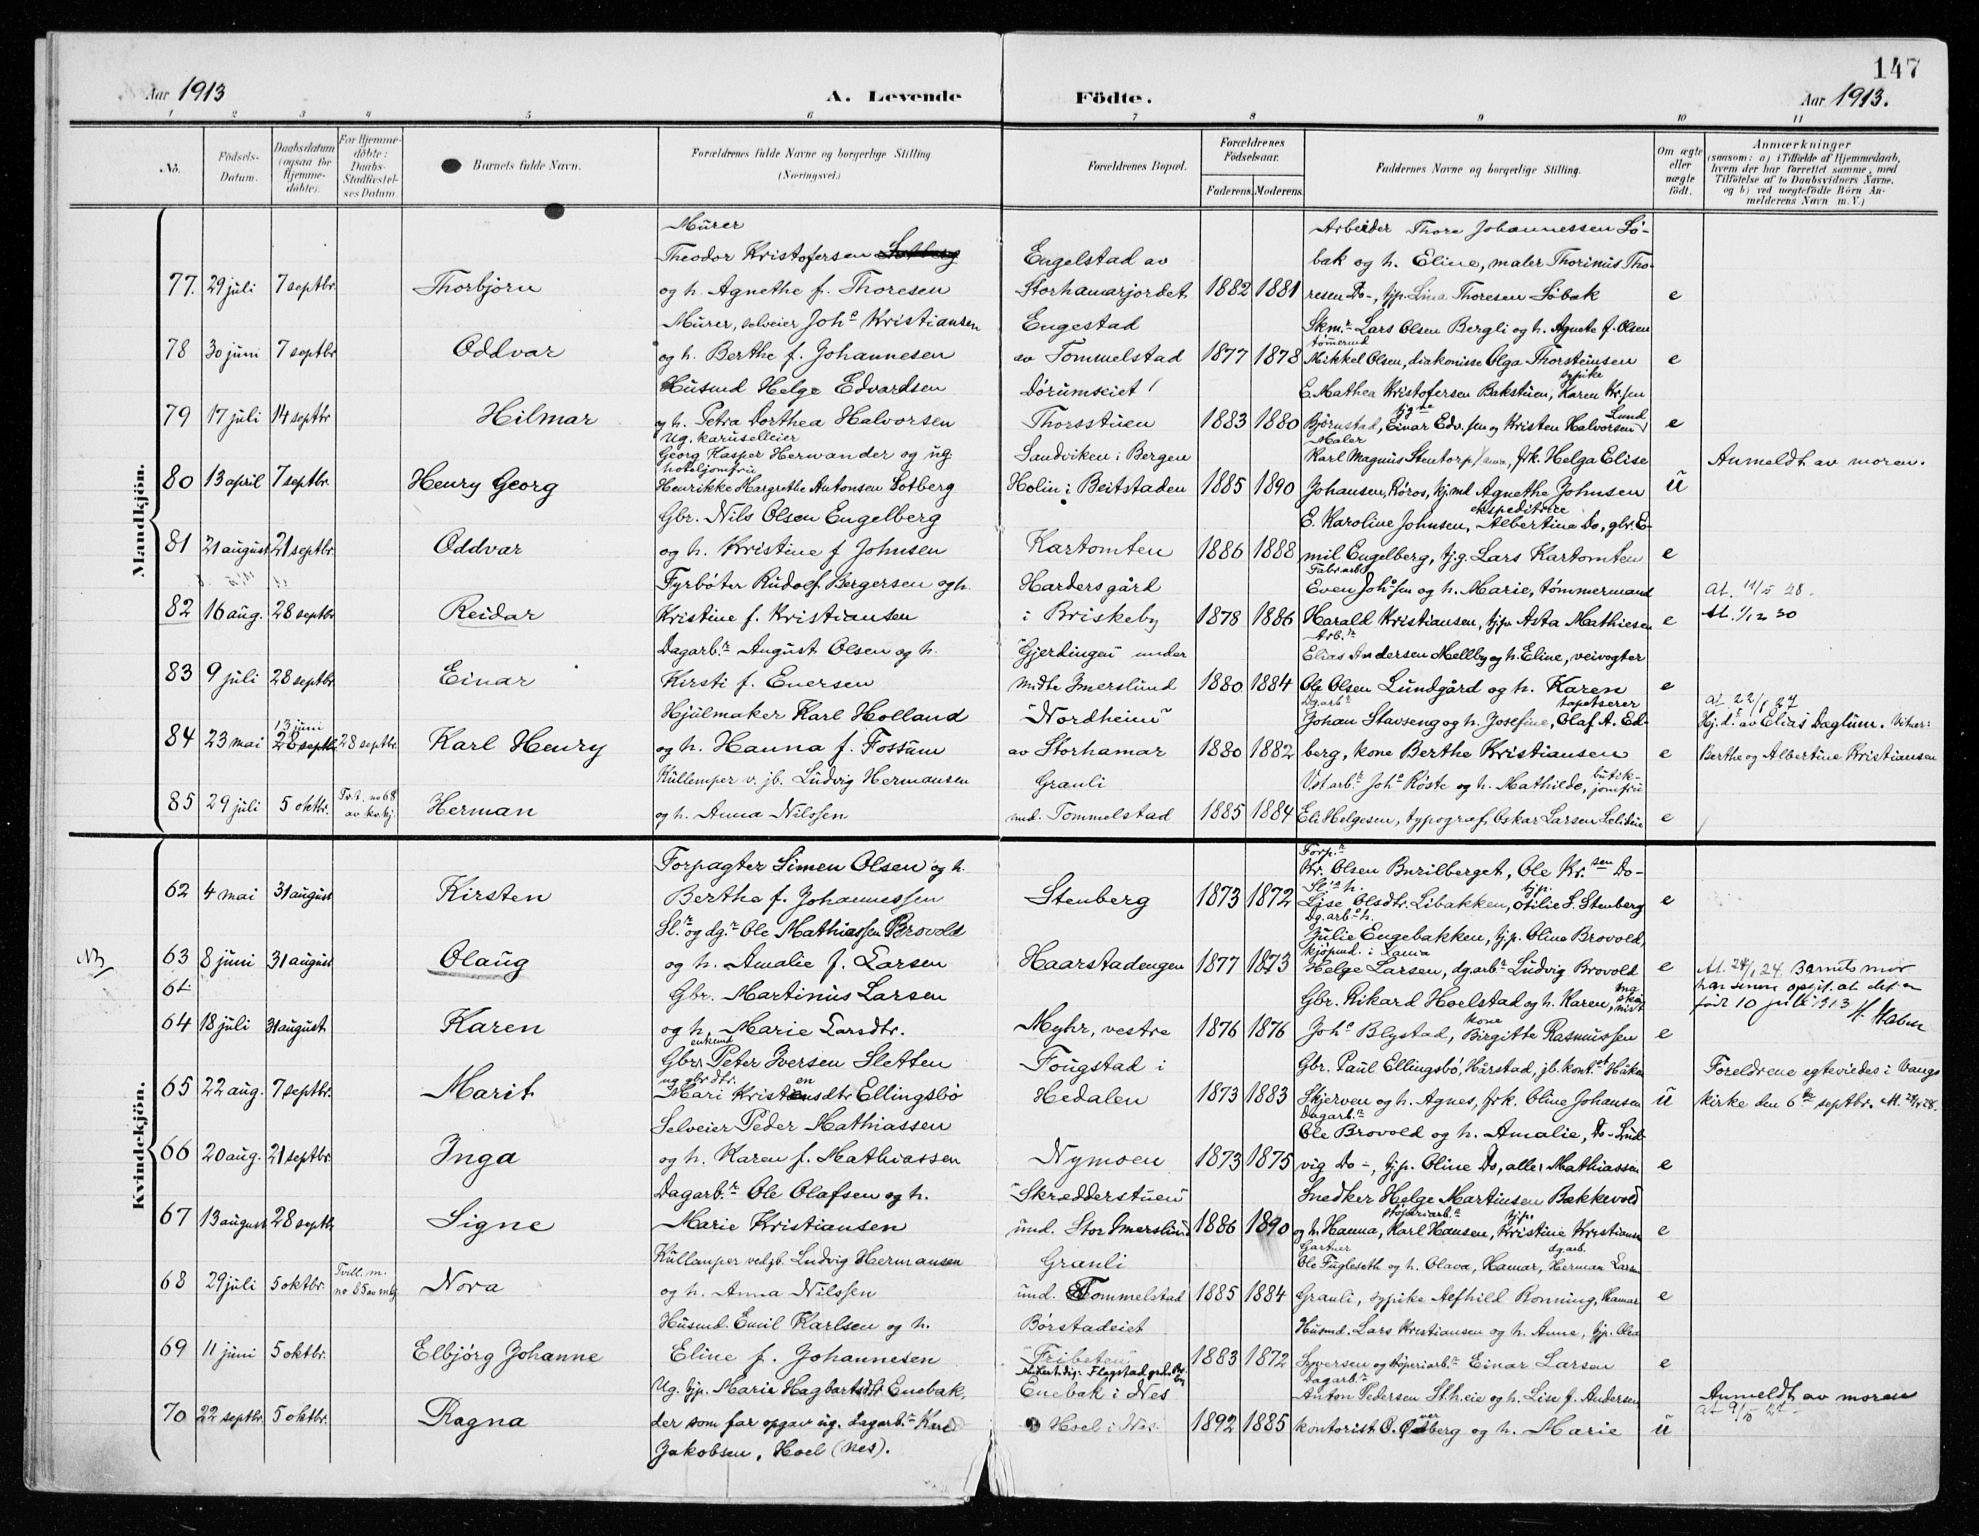 147
Aar 1913
A. Levende
Födte.
Aar 1913.
1 2 3 4 5 6 7 8 9 10 11
No.
Födsels-Datum.
Daabsdatum (ogsaa for Hjemme-döbte).
For Hjemme-döbte: Daabs-Stadfæstel-ses Datum.
Barnets fulde Navn.
Forældrenes fulde Navne og borgerlige Stilling (Næringsvei.)
Forældrenes Bopæl.
Forældrenes Födselsaar.
Faderens. Moderens.
Fadderenes Navne og borgerlige Stilling.
Om ægte eller uægte födt.
Anmærkninger
(saasom: a) i Tilfælde af Hjemmedaab,
hvem der har forrettet samme, med
Tilföielse af to Daabsvidners Navne,
og b) ved uægtefödte Börn An-
melderens Navn m. V.)
Mandkjön.
Murer
Theodor Kristofersen Solberg
og h. Agnethe f. Thoresen
77. 29 juli 7 septbr. Thorbjørn
Engelstad av
Storhamarjordet 1882 1881
Arbeider Thore Johannessen Sö-
bak og h. Eline, maler Thorinus Tho-
resen Do-, tjp. Lina Thoresen Söbak e
Murer, selveier Joh. Kristiansen
78 30 juni 7 septbr Oddvar
og h. Berthe f. Johannesen
Engestad
av Tommelstad 1877 1878
Skm.r Lars Olsen Bergli og h. Agnete f. Olsen
tömermd
Mikkel Olsen, diakonisse Olga Thorsteinsen e
Husmd Helge Edvardsen
79 17 juli 14 septbr Hilmar
og h. Petra Dorthea Halvorsen
Dörumseiet
Thorsstuen 1883 1880
E. Mathea Kristofersen Bakstuen, sypike Karen Kr.sen
Björnstad, Einar Edv.sen og Kristen Halvorsen Lund e
Ug. karuselleier
Georg Kasper Herwander og ug.
hoteljomfru
80 13 april 7 septbr. Henry Georg
Henrikke Margrethe Antonsen Sotberg
Sandviken i Bergen
Holin i Beitstaden 1885 1890
Maler
Karl Magnus Stentorp, frk. Helga Elise
Johansen, Röros, kj.md Agnethe Johnsen u
Anmeldt av moren.
Gbr. Nils Olsen Engelberg
81 21 august 21 septbr. Oddvar
og h. Kristine f Johnsen
Kartomten 1886 1888
E. Karoline Johnsen, ekspeditrise Albertina Do, gbr. E-
mil Engelberg, tj.g. Lars Kartomten e
Fyrböter Rudolf Bergersen og h.
82 16 aug. 28 septbr Reidar
Kristine f. Kristiansen
Hardersgård
i Briskeby 1878 1886
Fabr.arb
Even Joh.sen og h. Marie, tömmermand
Harald Kristiansen, tjp. Asta Mathiesen e
At. 11/5 28.
At. 1/12 30
Dagarb.r August Olsen og h.
83 9 juli 28 septbr Einar
Kirsti f. Enersen
"Gjerdingen" under
midte Imerslund 1880 1884
Arb.r
Elias Andersen Mellby og h. Eline, veivogter
Ole Olsen Lundgård og h. Karen e
Hjulmaker Karl Holland
13 juni
84 23 mai 28 septbr 28 septbr. Karl Henry
og h. Hanna f. Fossum
"Nordheim"
av Storhamar 1880 1882
Dg.arb.r tapetserer
Johan Stavseng og h. Josefine, Olaf A. Ed-
berg, kone Berthe Kristiansen e
At 22/1 27
Hj.d. av Elias Daglum. Vitner:
Berthe og Albertine Kristiansen
Kullemper v. jb. Ludvig Hermansen
85 29 juli 5 oktbr. Tvt. no 68 av kv.kj. Herman
og h. Anna Nilssen
Granli
und. Tommelstad 1885 1884
Vst arb.r Joh. Röste og h. Mathilde, butik-jomfru
Eli Helgesen, typograf Oskar Larsen e
Kvindekjön.
Forpagter Simen Olsen og h.
62 4 mai 31 august Kirsten
Berthe f. Johannessen
Stenberg 1873 1872
Forp.r
Kr. Olsen Burilberget, Ole Kr.sen Do-
Lise Olsdtr. Libakken, tjp. Otilie S. Stenberg e
Sl. og dg.r Ole Mathiassen Brovold
63 8 juni 31 august Olaug
og h. Amalie f. Larsen
Haarstadengen 1877 1873
Dg.arb. h.
Julie Engebakken, tjp. Oline Brovold,
kjöpmd.
Helge Larsen, dg.arb.r Ludvig Brovold e
At. 24/1 24. Barnets mor
har senere opgit at det er
född 10 juli 1913
Gbr. Martinus Larsen
64 18 juli 31 august Karen
og h. Marie Larsdtr.
Myhr, vestre 1876 1876
Gbr. Rikard Hoelstad og h. Karen,
kone
Joh. Blystad, Birgitte Rasmussen e
enkmd
Gbr. Peter Iversen Sletten
ug gbr dtr.
65 22 aug. 7 septbr. Marit
Mari Kristensdtr Ellingsbö
Fougstad i
Hedalen 1873 1883
Gbr. Paul Ellingsbö, Hårstad, jb. kont. Håken
Skjerven og h. Agnes, frk. Oline Johansen u
Foreldrene egteviedes i Vangs
kirke den 6te septbr.
Selveier Peder Mathiassen
66 20 aug. 21 septbr. Inga
og h. Karen f. Mathiassen
Nymoen 1873 1875
Dagarb.r
Ole Brovold og h. Amalie, Do- Lud-
vig Do-, tjp. Oline Do, aller Mathiassen e
Dagarb.r Ole Olafsen og h.
67 13 august 28 septb. Signe
Marie Kristiansen
"Skrædderstuen"
und. Stor Imerslund 1886 1890
Snedker Helge Martinsen Bakkevold
og h. Hanna, støperiarb.r Karl Hansen, tjp. Kristine Kristiansen e
Kullemper ved jb. Ludvig Hermansen
68 29 juli 5 oktbr. Tvill. m. no 85 av mkj. Nora
og h. Anna Nilssen
Granli
und. Tommelstad 1885 1884
Gartner dg.arb.
Ole Fugleseth og h. Olava, Hamar, Herman Larsen
Granli, sypike Alfhild Ronning, Hamar e
Husmd. Emil Karlsen og h.
69 11 juni 5 oktbr. Elbjörg Johanne
Eline f. Johannesen
Börstadeiet
"Fribeten" 1883 1872
Husmd. Lars Kristiansen og h. Anne, tjp. Olea
Syversen og stöperiarb.r Einar Larsen e
Ug. tjp. Marie Hagbartsdtr Enebak,
70 22 septbr. 5 oktbr. Ragna
der som far opgav ug. Dagarb.r Karl
Jakobsen, Hoel (Nes).
Enebak i Nes
Hoel i Nes 1892 1885
Dagarb.r
Anton Pedersen St.heie og h. Lise f. Andersen
kontorist O. Overberg og h. Marie u
Anmeldt av moren